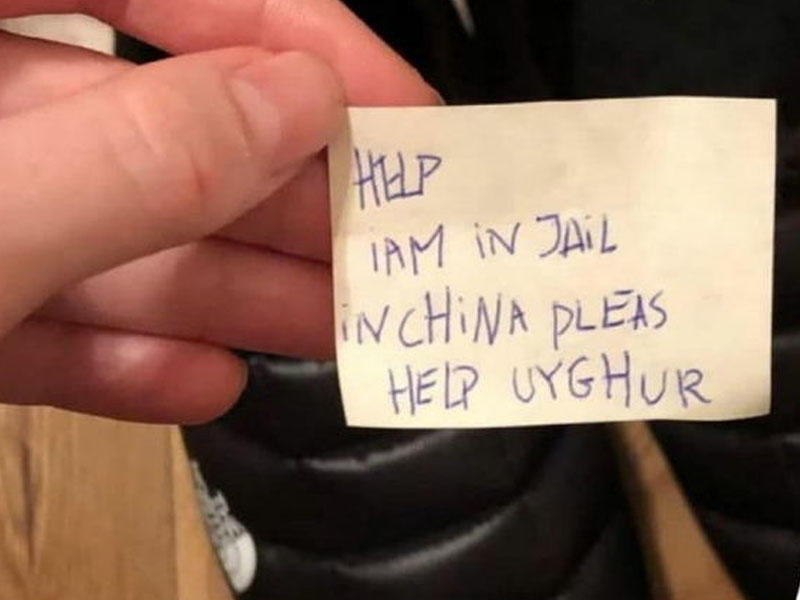 HELP
iAM iN JAiL
iN CHiNA PLEAS
HELP UYGHUR